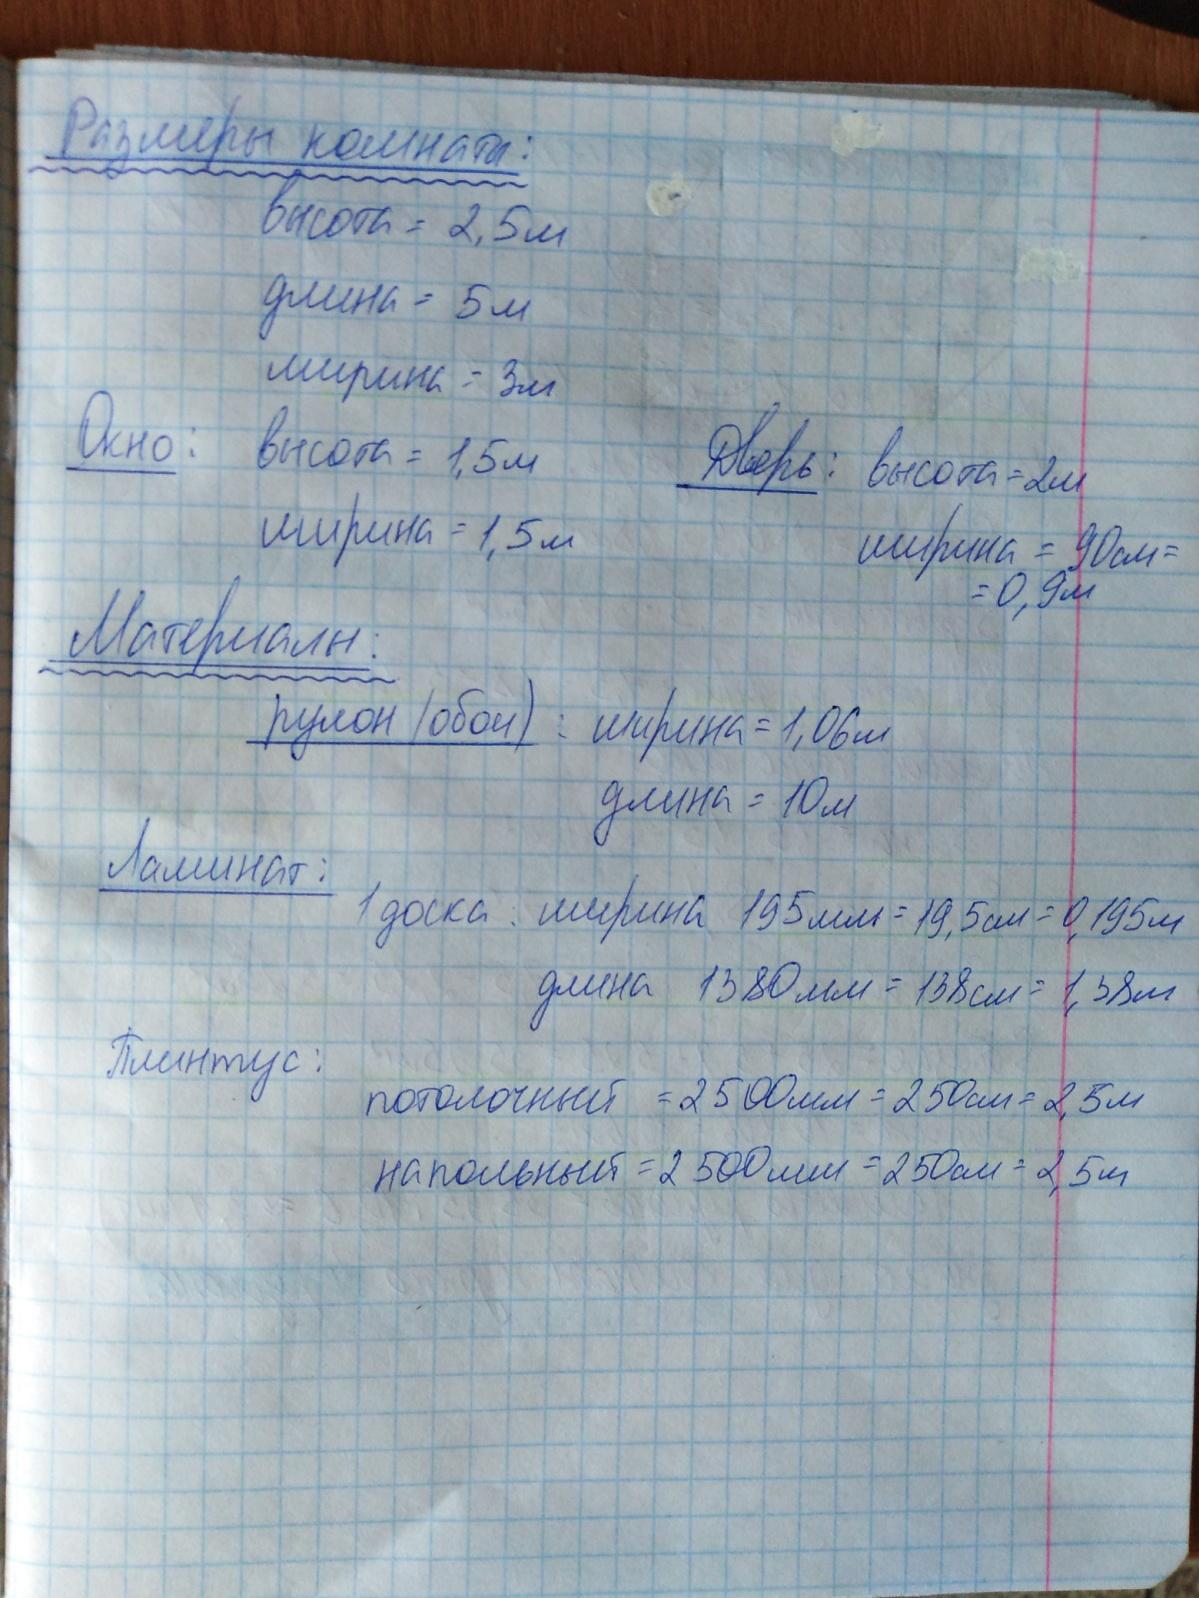 Размеры комнаты:
высота = 2,5м
длина = 5м
ширина = 3м
Окно: высота = 1,5м
Дверь: высота = 2м
ширина = 1,5м
ширина = 90см =
= 0,9м
Материалы:
рулон (обои): ширина = 1,06м
длина = 10м
Ламинат:
1 доска: ширина 195мм = 19,5см = 0,195м
длина 1380мм = 138см = 1,38м
Плинтус:
потолочный = 2500мм = 250см = 2,5м
напольный = 2500мм = 250см = 2,5м